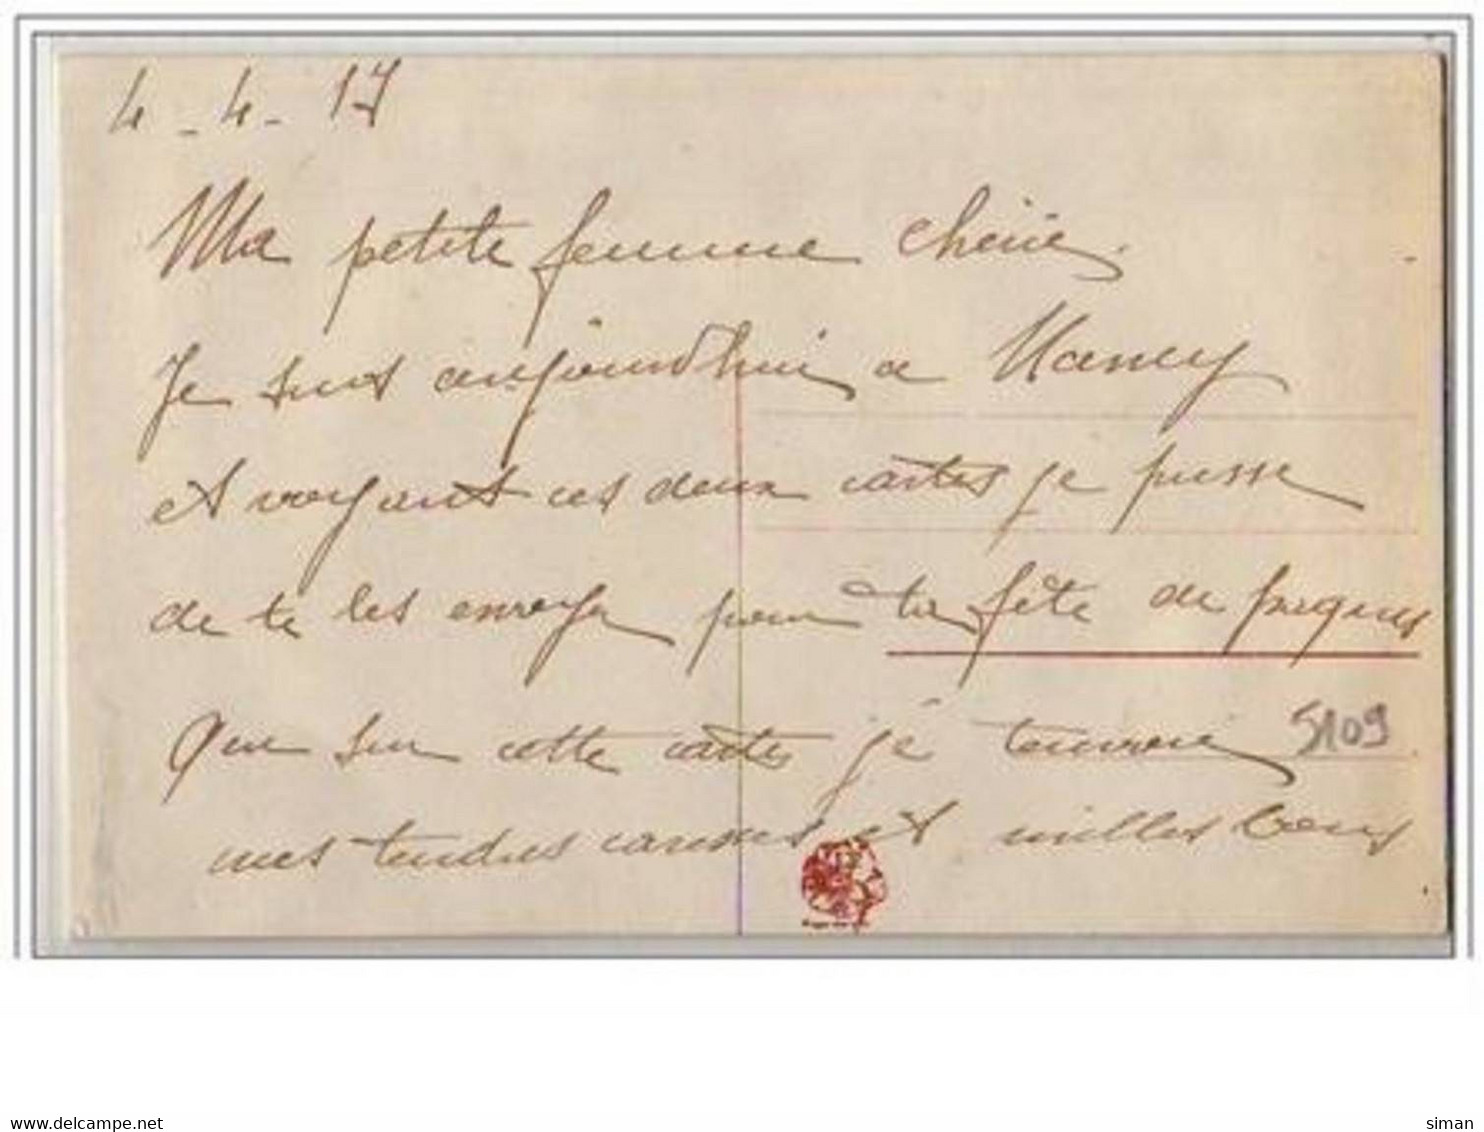 4-4-17
Ma petite femme cherie.
Je suis aujourd'hui a Nancy
et voyant ces deux cartes je pense
de te les envoyer pour ta fête de paques
Que sur cette cartes je
5109
mes tendres caresses et milles bons
www.delcampe.net
siman